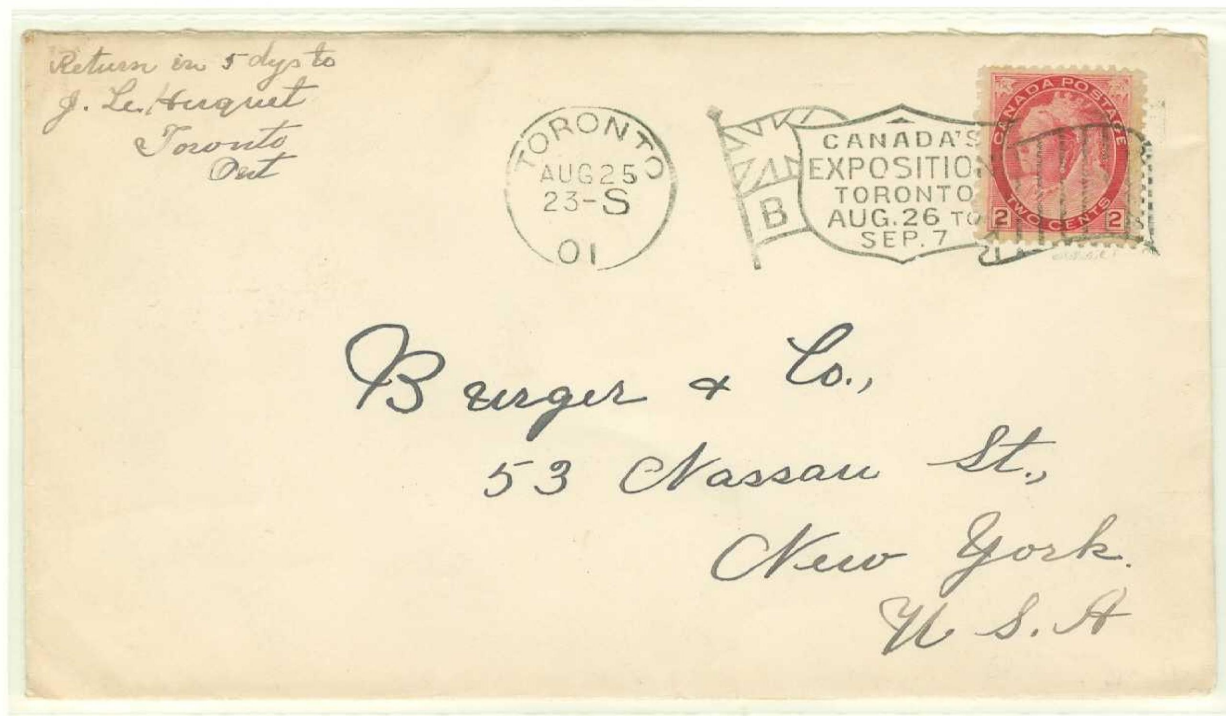 Return in 5 dys to
J. Le Huquet
Toronto
Ont
TORONTO
AUG 25
23-S
01
B
CANADA'S
EXPOSITION
TORONTO
AUG. 26 TO
SEP. 7
CANADA POSTAGE
2 TWO CENTS 2
Burger & Co.,
53 Nassau St.,
New York.
U S. A